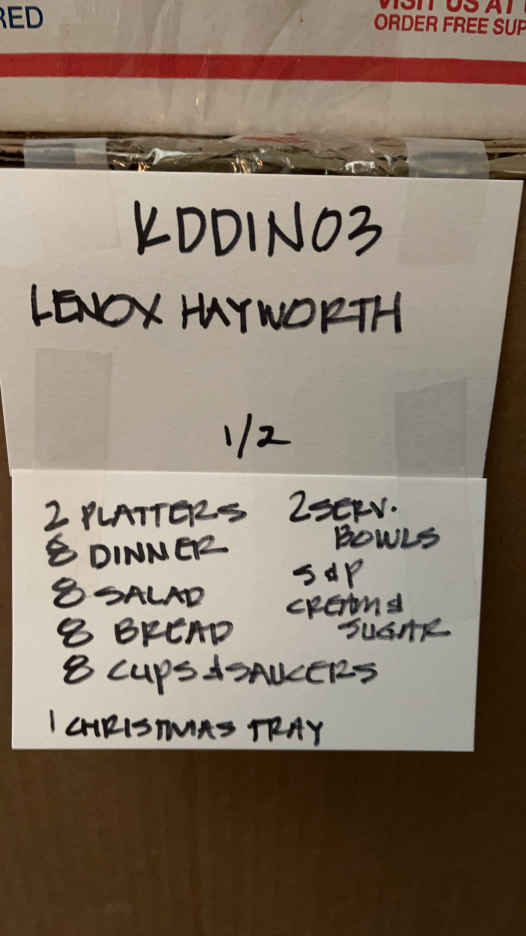 RED
VISIT US AT
ORDER FREE SUP
KDDIN03
LENOX HAYWORTH
1/2
2 PLATTERS
8 DINNER
8 SALAD
8 BREAD
8 CUPS & SAUCERS
1 CHRISTMAS TRAY
2 SERV.
BOWLS
S & P
CREAM &
SUGAR